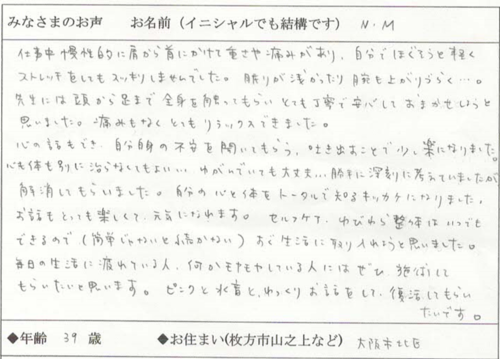 みなさまのお声　お名前（イニシャルでも結構です） N.M
仕事中 慢性的に肩から首にかけて重さや痛みがあり、自分でほぐそうと軽く
ストレッチをしてもスッキリしませんでした。眠りが浅かったり 腕も上がりづらく…。
先生には頭から足まで全身を触ってもらい とても丁寧で安心しておまかせしようと
思いました。痛みもなく とてもリラックスできました。
心の話もでき、自分自身の不安を聞いてもらう、吐き出すことで少し楽になりました。
心も体も別に治らなくてもよい… ゆがんでいても大丈夫… 勝手に深刻に考えていましたが
解消してもらいました。自分の心と体をトータルで知るキッカケになりました。
お話もとっても楽しくて、元気になれます。セルフケア、ゆびわら整体は いつでも
できるので（簡単じゃないと続かない）すぐ生活に取り入れようと思いました。
毎日の生活に疲れている人、何かモヤモヤしている人にはぜひ 施術して
もらいたいと思います。ピンクと水育と、ゆっくりお話をして、復活してもらい
たいです。
◆年齢 39 歳　◆お住まい(枚方市山之上など) 大阪市北区